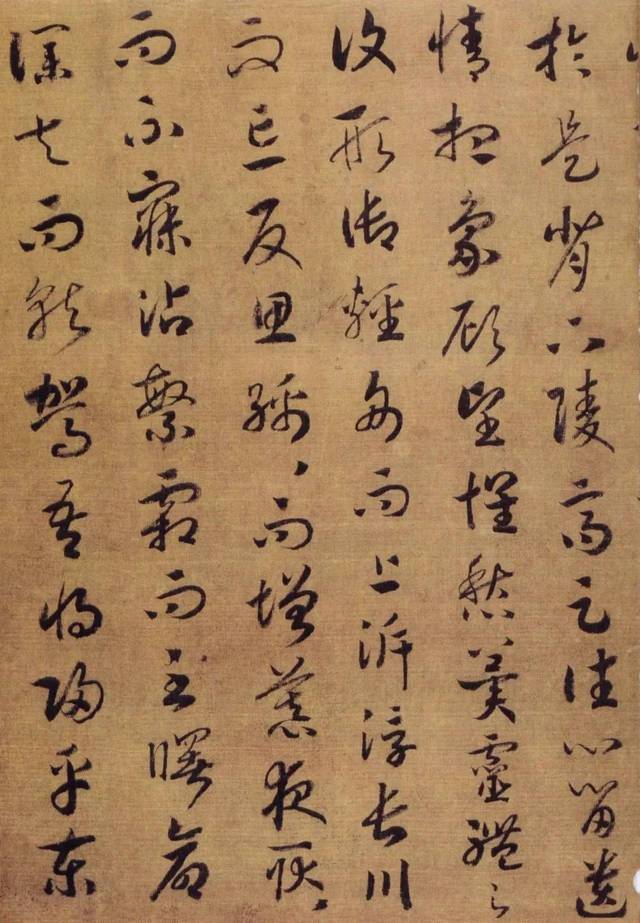 於是背下陵高足往心留遺
情想象顧望懷愁冀靈體之
復形御輕舟而上泝浮長川
而忘反思綿〻而增慕夜耿〻
而不寐沾繁霜而至曙命
僕夫而就駕吾將歸乎東